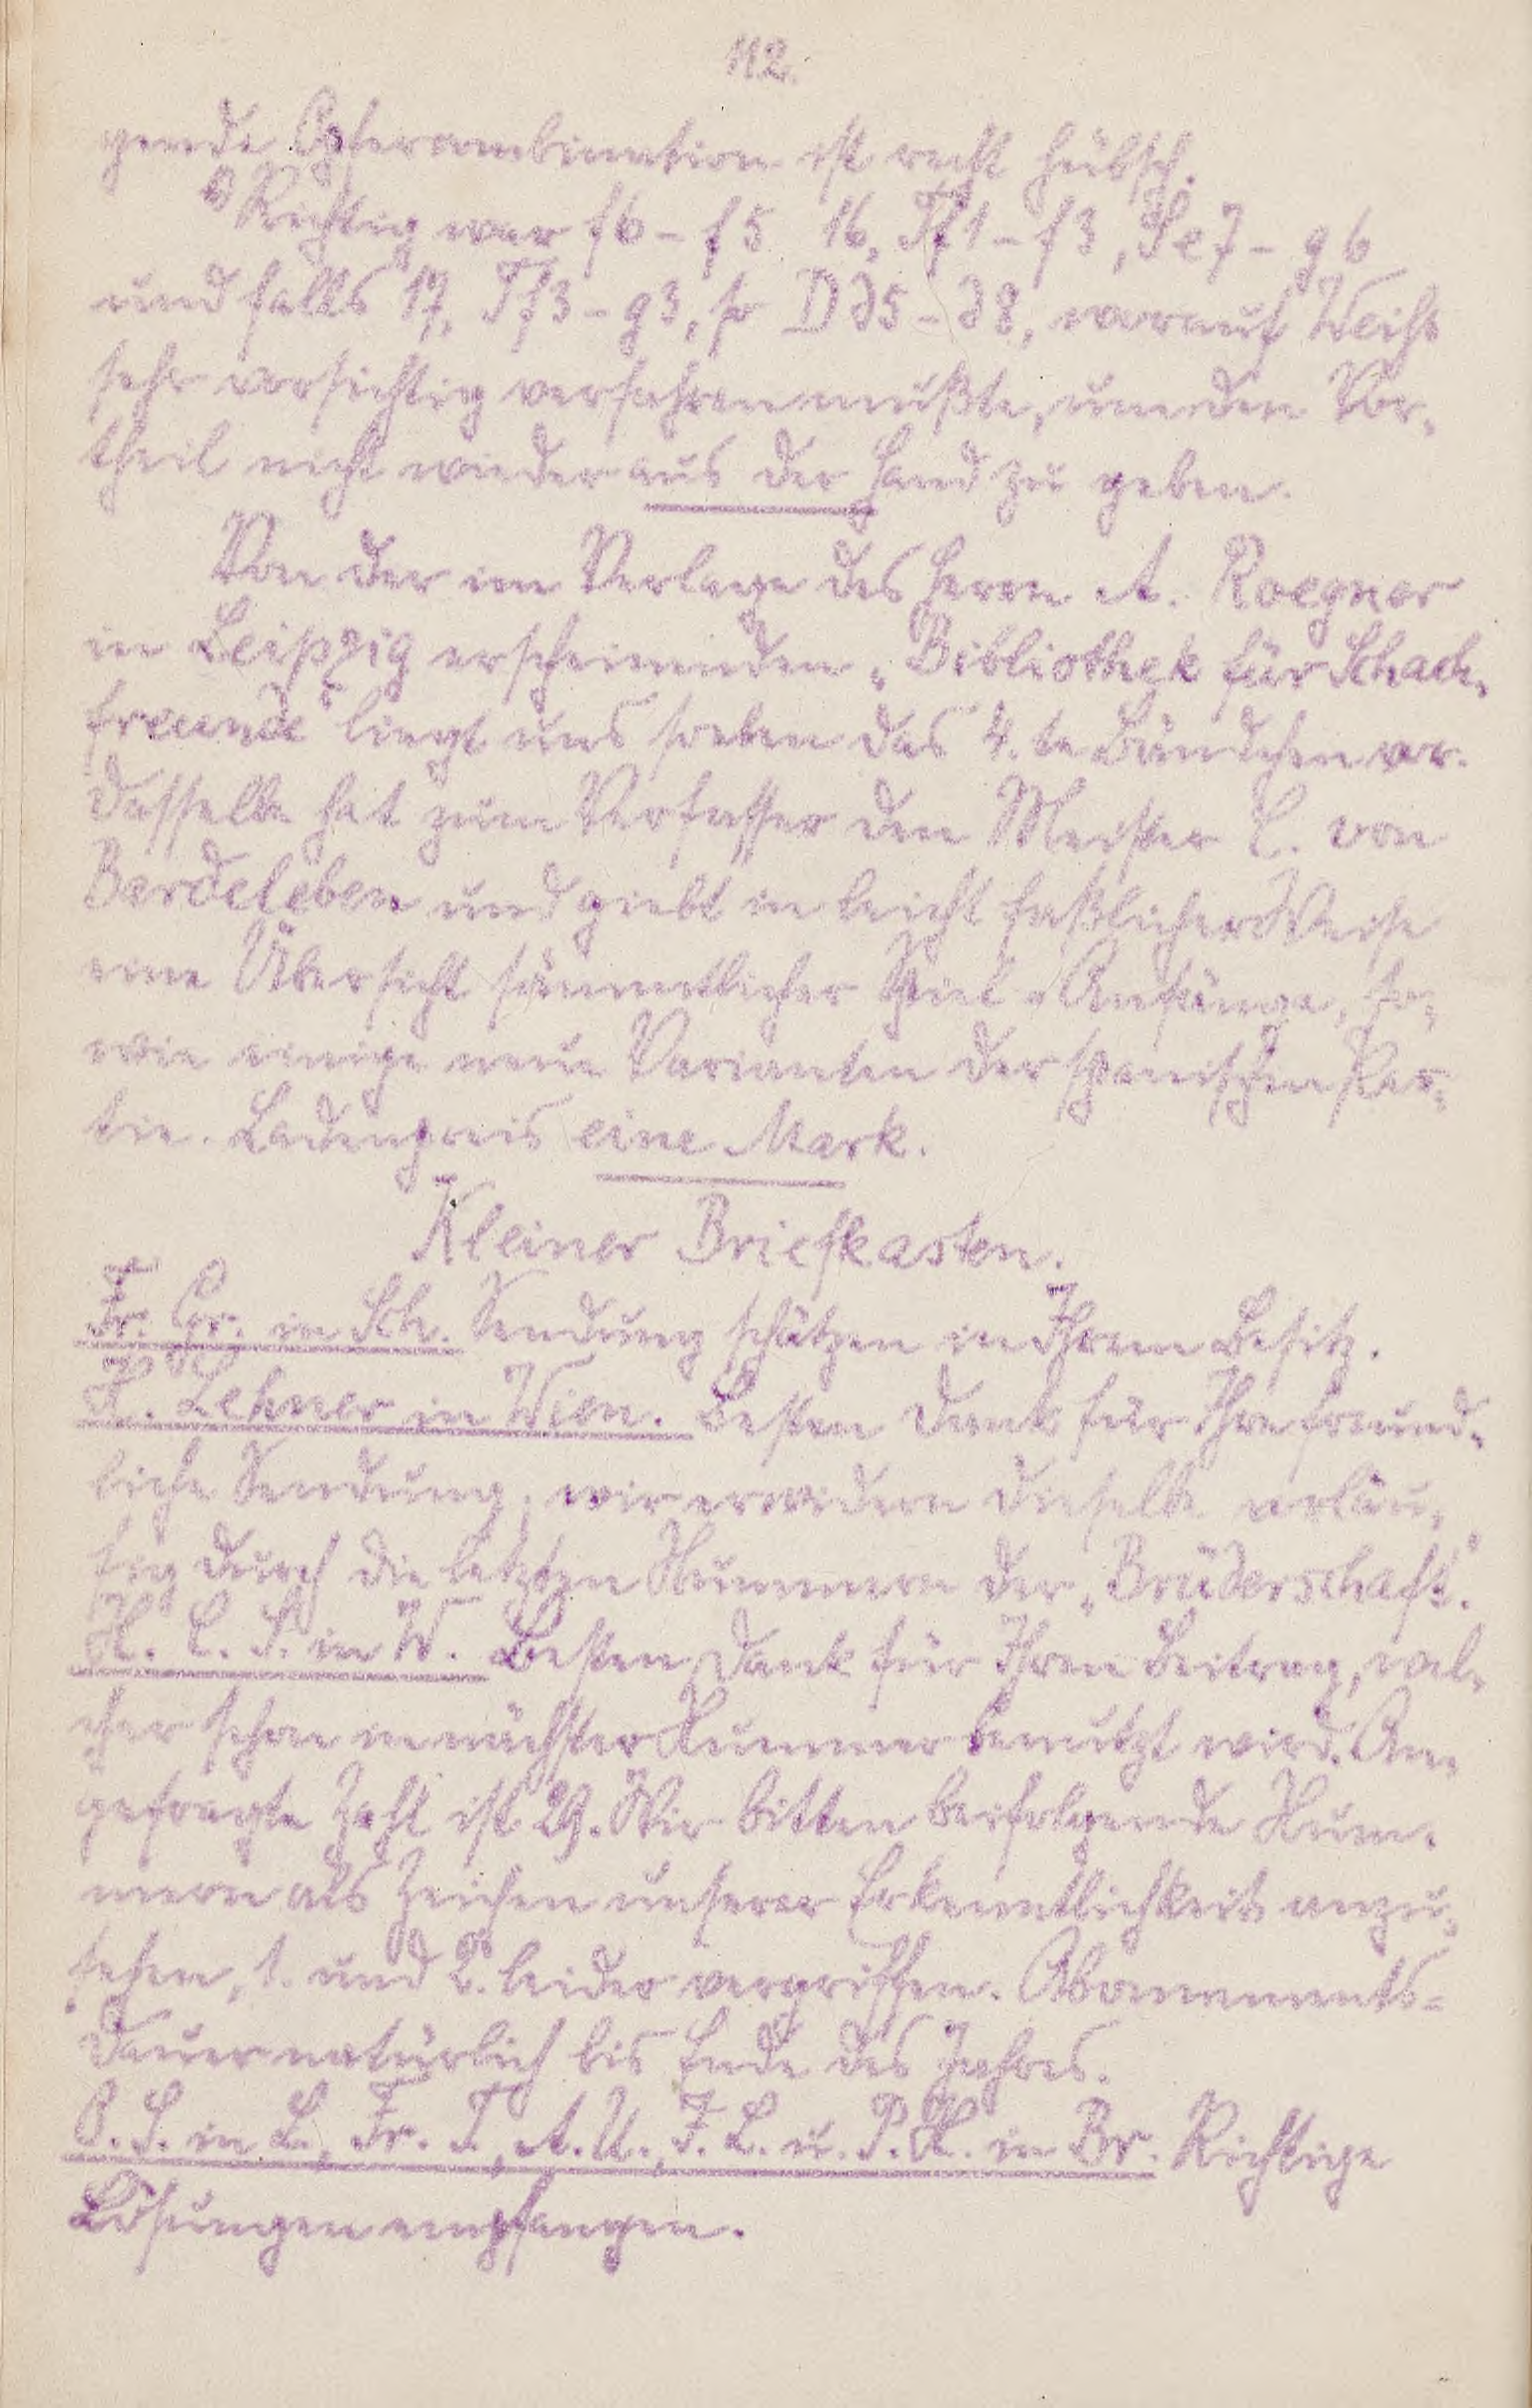 112.
gende Opferkombination ist recht hübsch.
Richtig war f6-f5 16, Tf1-f3, Se7-g6
und falls 17, Tf3-g3, so Dd5-d8, worauf Weiß
sehr vorsichtig verfahren mußte, um den Vor-
theil nicht wieder aus der Hand zu geben.
Von der im Verlage des Herrn A. Roegner
in Leipzig erscheinenden „Bibliothek für Schach-
freunde" liegt uns soeben das 4.te Bändchen vor.
Dasselbe hat zum Verfasser den Meister C. von
Bardeleben und giebt in leicht faßlicher Weise
eine Übersicht sämmtlicher Spiel-Anfänge, so-
wie einige neue Varianten der spanischen Par-
tie. Ladenpreis eine Mark.
Kleiner Briefkasten.
Fr. Gr. in Sch. Sendung schätzen in Ihrem Besitz.
H. Lehner in Wien. Besten Dank für Ihre freund-
liche Sendung, wir erwidern dieselbe vorläu-
fig durch die letzten Nummern der „Brüderschaft".
H. C. S. in W. Besten Dank für Ihren Beitrag, wel-
cher schon in nächster Nummer benutzt wird. An-
gefragte Zahl ist 29. Wir bitten beifolgende Num-
mern als Zeichen unserer Erkenntlichkeit anzu-
sehen, 1. und 2. leider vergriffen. Abonnements-
Dauer natürlich bis Ende des Jahres.
O. S. in L., Fr. T., A. U., F. L. u. P. H. in Br. Richtige
Lösungen empfangen.